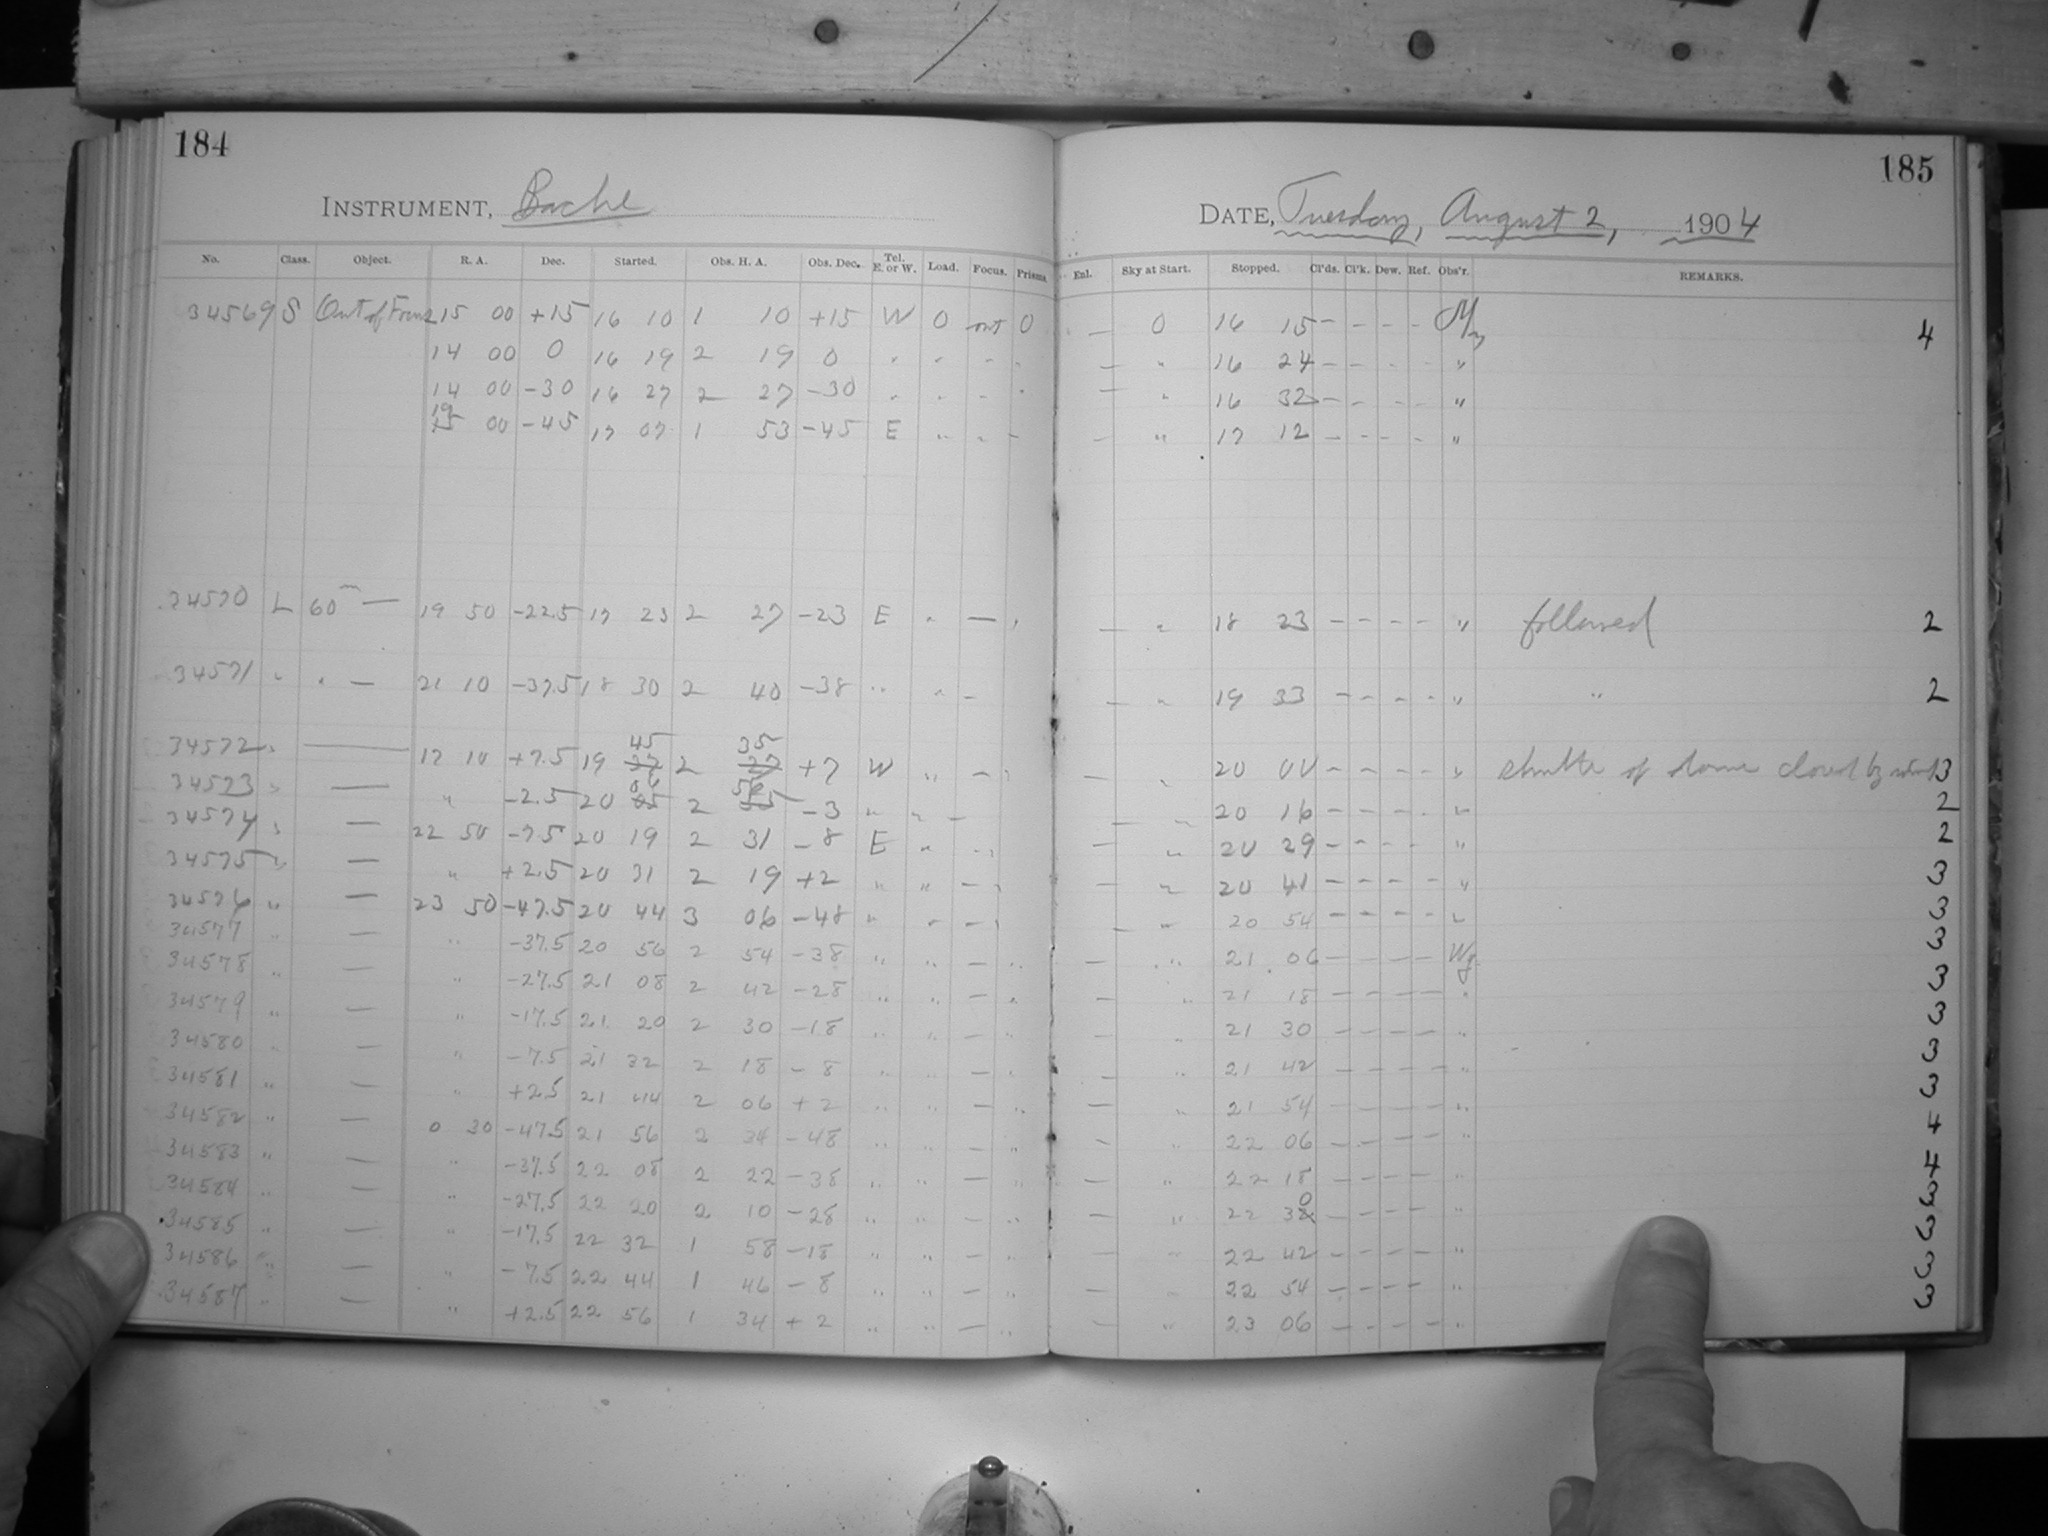 184
INSTRUMENT, Bache
No. Class. Object. R. A. Dec. Started. Obs. H. A. Obs. Dec. Tel. E. or W. Load. Focus. Prisms
34569 S Out of Focus 15 00 +15 16 10 1 10 +15 W 0 out 0
14 00 0 16 19 2 19 0 " " " "
14 00 -30 16 27 2 27 -30 " " " "
19 00 -45 17 07 1 53 -45 E " " "
34570 L 60m — 19 50 -22.5 17 23 2 27 -23 E " — "
34571 " " — 21 10 -37.5 18 30 2 40 -38 " " —
34572 " — 17 10 +7.5 19 45 2 35 +7 W " — "
34573 " — " -2.5 20 06 2 56 -3 " " —
34574 " — 22 50 -7.5 20 19 2 31 -8 E " — "
34575 " — " +2.5 20 31 2 19 +2 " " — "
34576 " — 23 50 -47.5 20 44 3 06 -48 " " — "
34577 " — " -37.5 20 56 2 54 -38 " " — "
34578 " — " -27.5 21 08 2 42 -28 " " — "
34579 " — " -17.5 21 20 2 30 -18 " " — "
34580 " — " -7.5 21 32 2 18 -8 " " — "
34581 " — " +2.5 21 44 2 06 +2 " " — "
34582 " — 0 30 -47.5 21 56 2 34 -48 " " — "
34583 " — " -37.5 22 08 2 22 -38 " " — "
34584 " — " -27.5 22 20 2 10 -28 " " — "
34585 " — " -17.5 22 32 1 58 -18 " " — "
34586 " — " -7.5 22 44 1 46 -8 " " — "
34587 " — " +2.5 22 56 1 34 +2 " " — "
185
DATE, Tuesday, August 2, 1904
Enl. Sky at Start. Stopped. Cl'ds. Cl'k. Dew. Ref. Obs'r. REMARKS.
— 0 16 15 - - - - 4
— " 16 24 - - - - "
— " 16 32 - - - - "
— " 17 12 - - - - "
— " 18 23 - - - - " followed 2
— " 19 33 - - - - " " 2
— " 20 00 - - - - " shutter of dome closed by wind 3
— " 20 16 - - - - " 2
— " 20 29 - - - - " 2
— " 20 41 - - - - " 3
— " 20 54 - - - - " 3
— " 21 06 - - - - Wg. 3
— " 21 18 - - - - " 3
— " 21 30 - - - - " 3
— " 21 42 - - - - " 3
— " 21 54 - - - - " 3
— " 22 06 - - - - " 4
— " 22 18 - - - - " 4
— " 22 30 - - - - " 3
— " 22 42 - - - - " 3
— " 22 54 - - - - " 3
— " 23 06 - - - - " 3